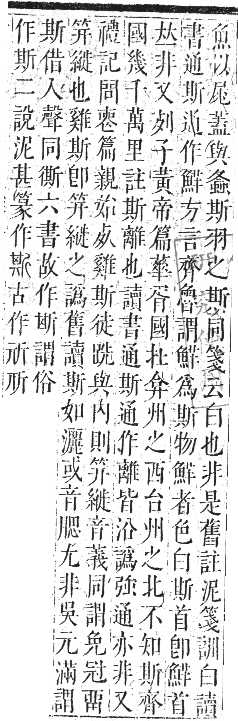 魚以尾蓋與螽斯羽之斯同箋云白也非是舊註泥箋訓白讀
書通斯道作鮮方言齊魯謂鮮為斯物鮮者色白斯首卽鮮首
𠀤非又列子黃帝篇華胥國在弇州之西台州之北不知斯齊
國幾千萬里註斯離也讀書通斯通作離皆沿譌強通亦非又
禮記問喪篇親始死雞斯徒跣與內則笄縰音義同謂免冠留
笄縰也雞斯卽笄縰之譌舊讀斯如灑或音腮尤非吳元滿謂
斯借人聲同㒋六書故作㫁謂俗
作斯二說泥甚篆作𣂕古作㪽所